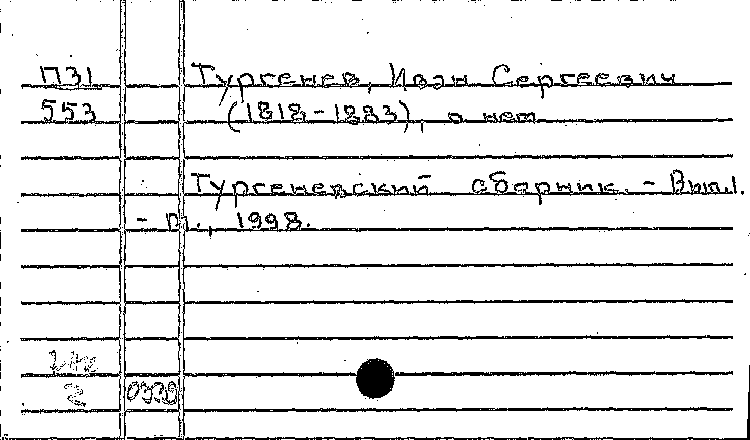 П31 Тургенев, Иван Сергеевич
553 (1818-1883), о нем
Тургеневский сборник. - Вып.1.
- М., 1998.
2